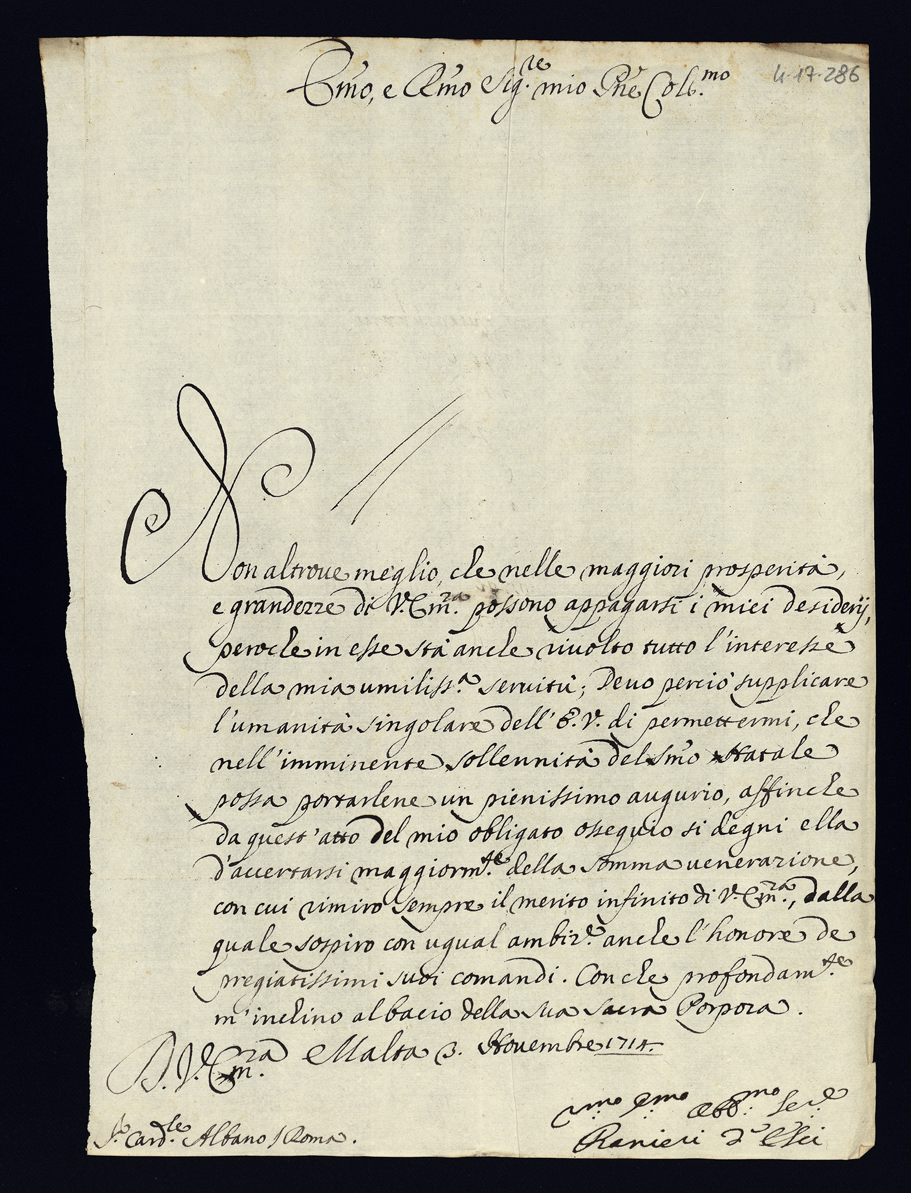 Emo, e Rmo Sig.re mio Pne Col.mo
4-17-286
Non altroue meglio, che nelle maggiori prosperità,
e grandezze di V. Em.za possono appagarsi i miei desiderij,
peroche in esse stà anche riuolto tutto l'interesse
della mia umiliss.a seruitù; Deuo perciò supplicare
l'umanità singolare dell'E. V. di permettermi, che
nell'imminente sollennità del Smo Natale
possa portarlene un pienissimo augurio, affinche
da quest'atto del mio obligato ossequio si degni ella
d'accertarsi maggiorm.te della somma uenerazione,
con cui rimiro sempre il merito infinito di V. Em.za, dalla
quale sospiro con ugual ambiz.e anche l'honore de
pregiatissimi suoi comandi. Con che profondam.te
m'inchino al bacio della sua sacra Porpora.
D. V. Em.za Malta 3. Novembre 1714.
mo mo obb.mo Ser.e
S.r Card.le Albano / Roma.
Ranieri d'Elci